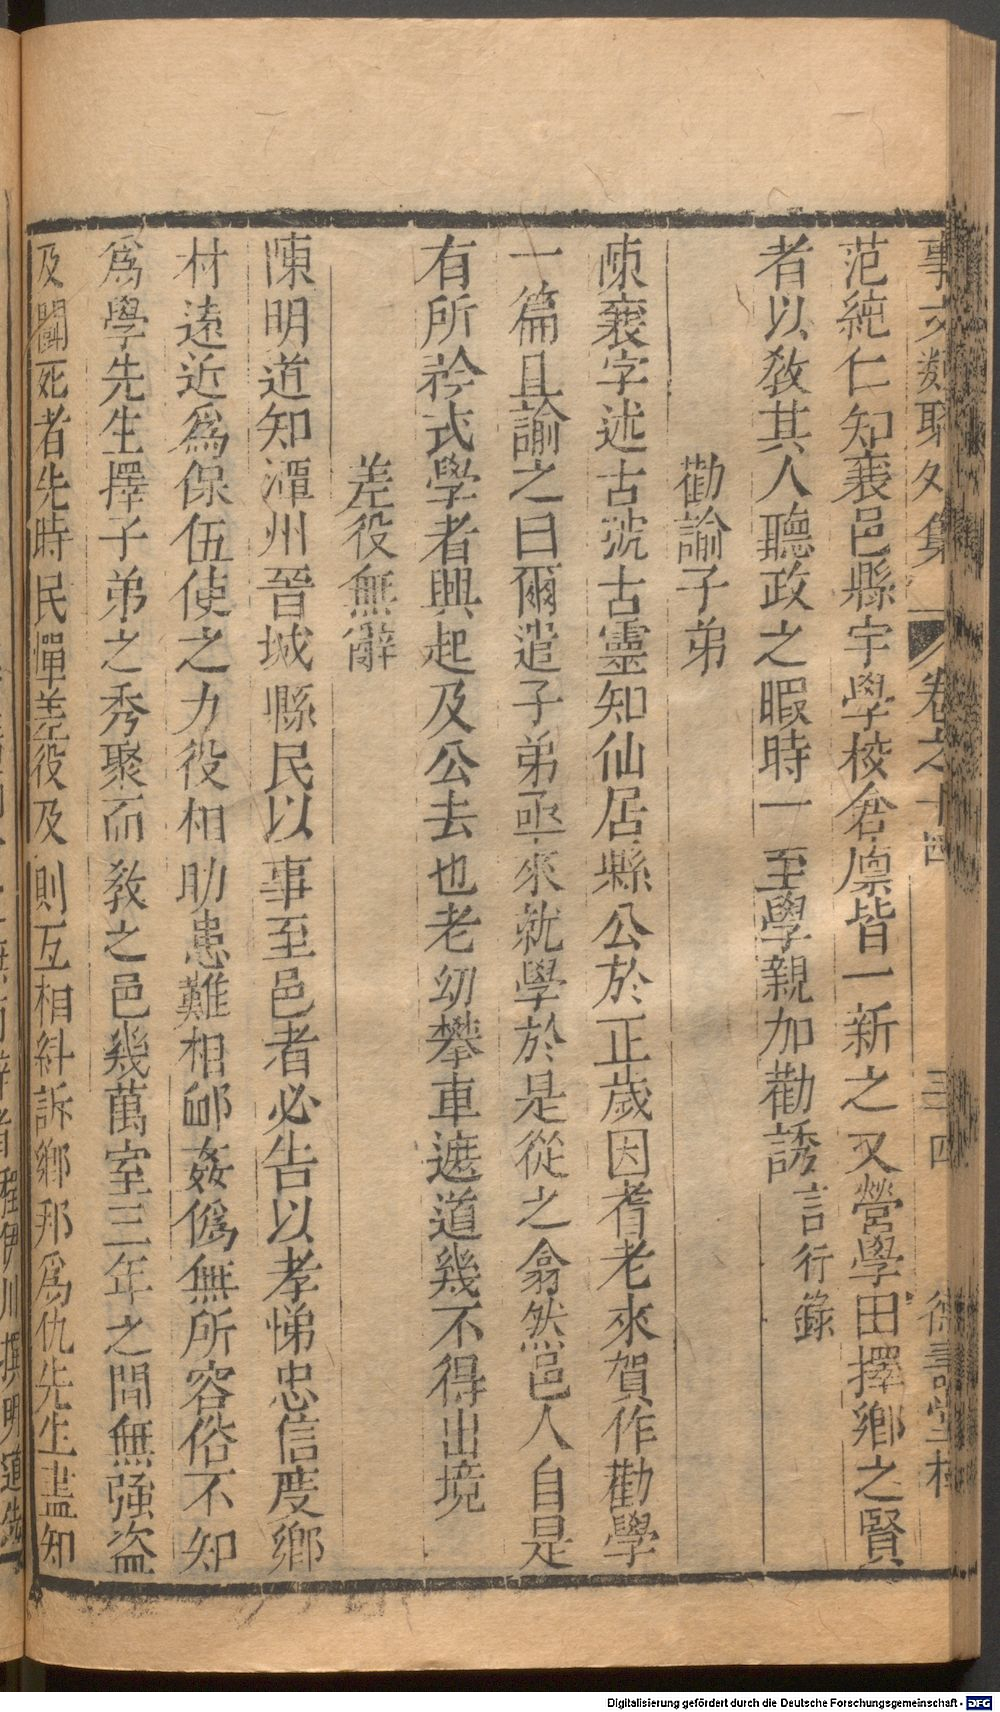 事文類聚外集 卷之十四 三四
范純仁知襄邑縣宇學校倉廩皆一新之又營學田擇鄉之賢
者以敎其人聽政之暇時一至學親加勸誘言行錄
勸諭子弟
陳襄字述古號古靈知仙居縣公於正歲因耆老來賀作勸學
一篇且諭之曰爾遣子弟亟來就學於是從之翕然邑人自是
有所衿式學者興起及公去也老幼攀車遮道幾不得出境
差役無辭
陳明道知澶州晉城縣民以事至邑者必告以孝悌忠信度鄉
村遠近爲保伍使之力役相助患難相䘏姦僞無所容俗不知
爲學先生擇子弟之秀聚而敎之邑幾萬室三年之間無強盜
及鬭死者先時民憚差役及則互相糾訴鄉邦爲仇先生盡知
程伊川撰明道先
Digitalisierung gefördert durch die Deutsche Forschungsgemeinschaft - DFG